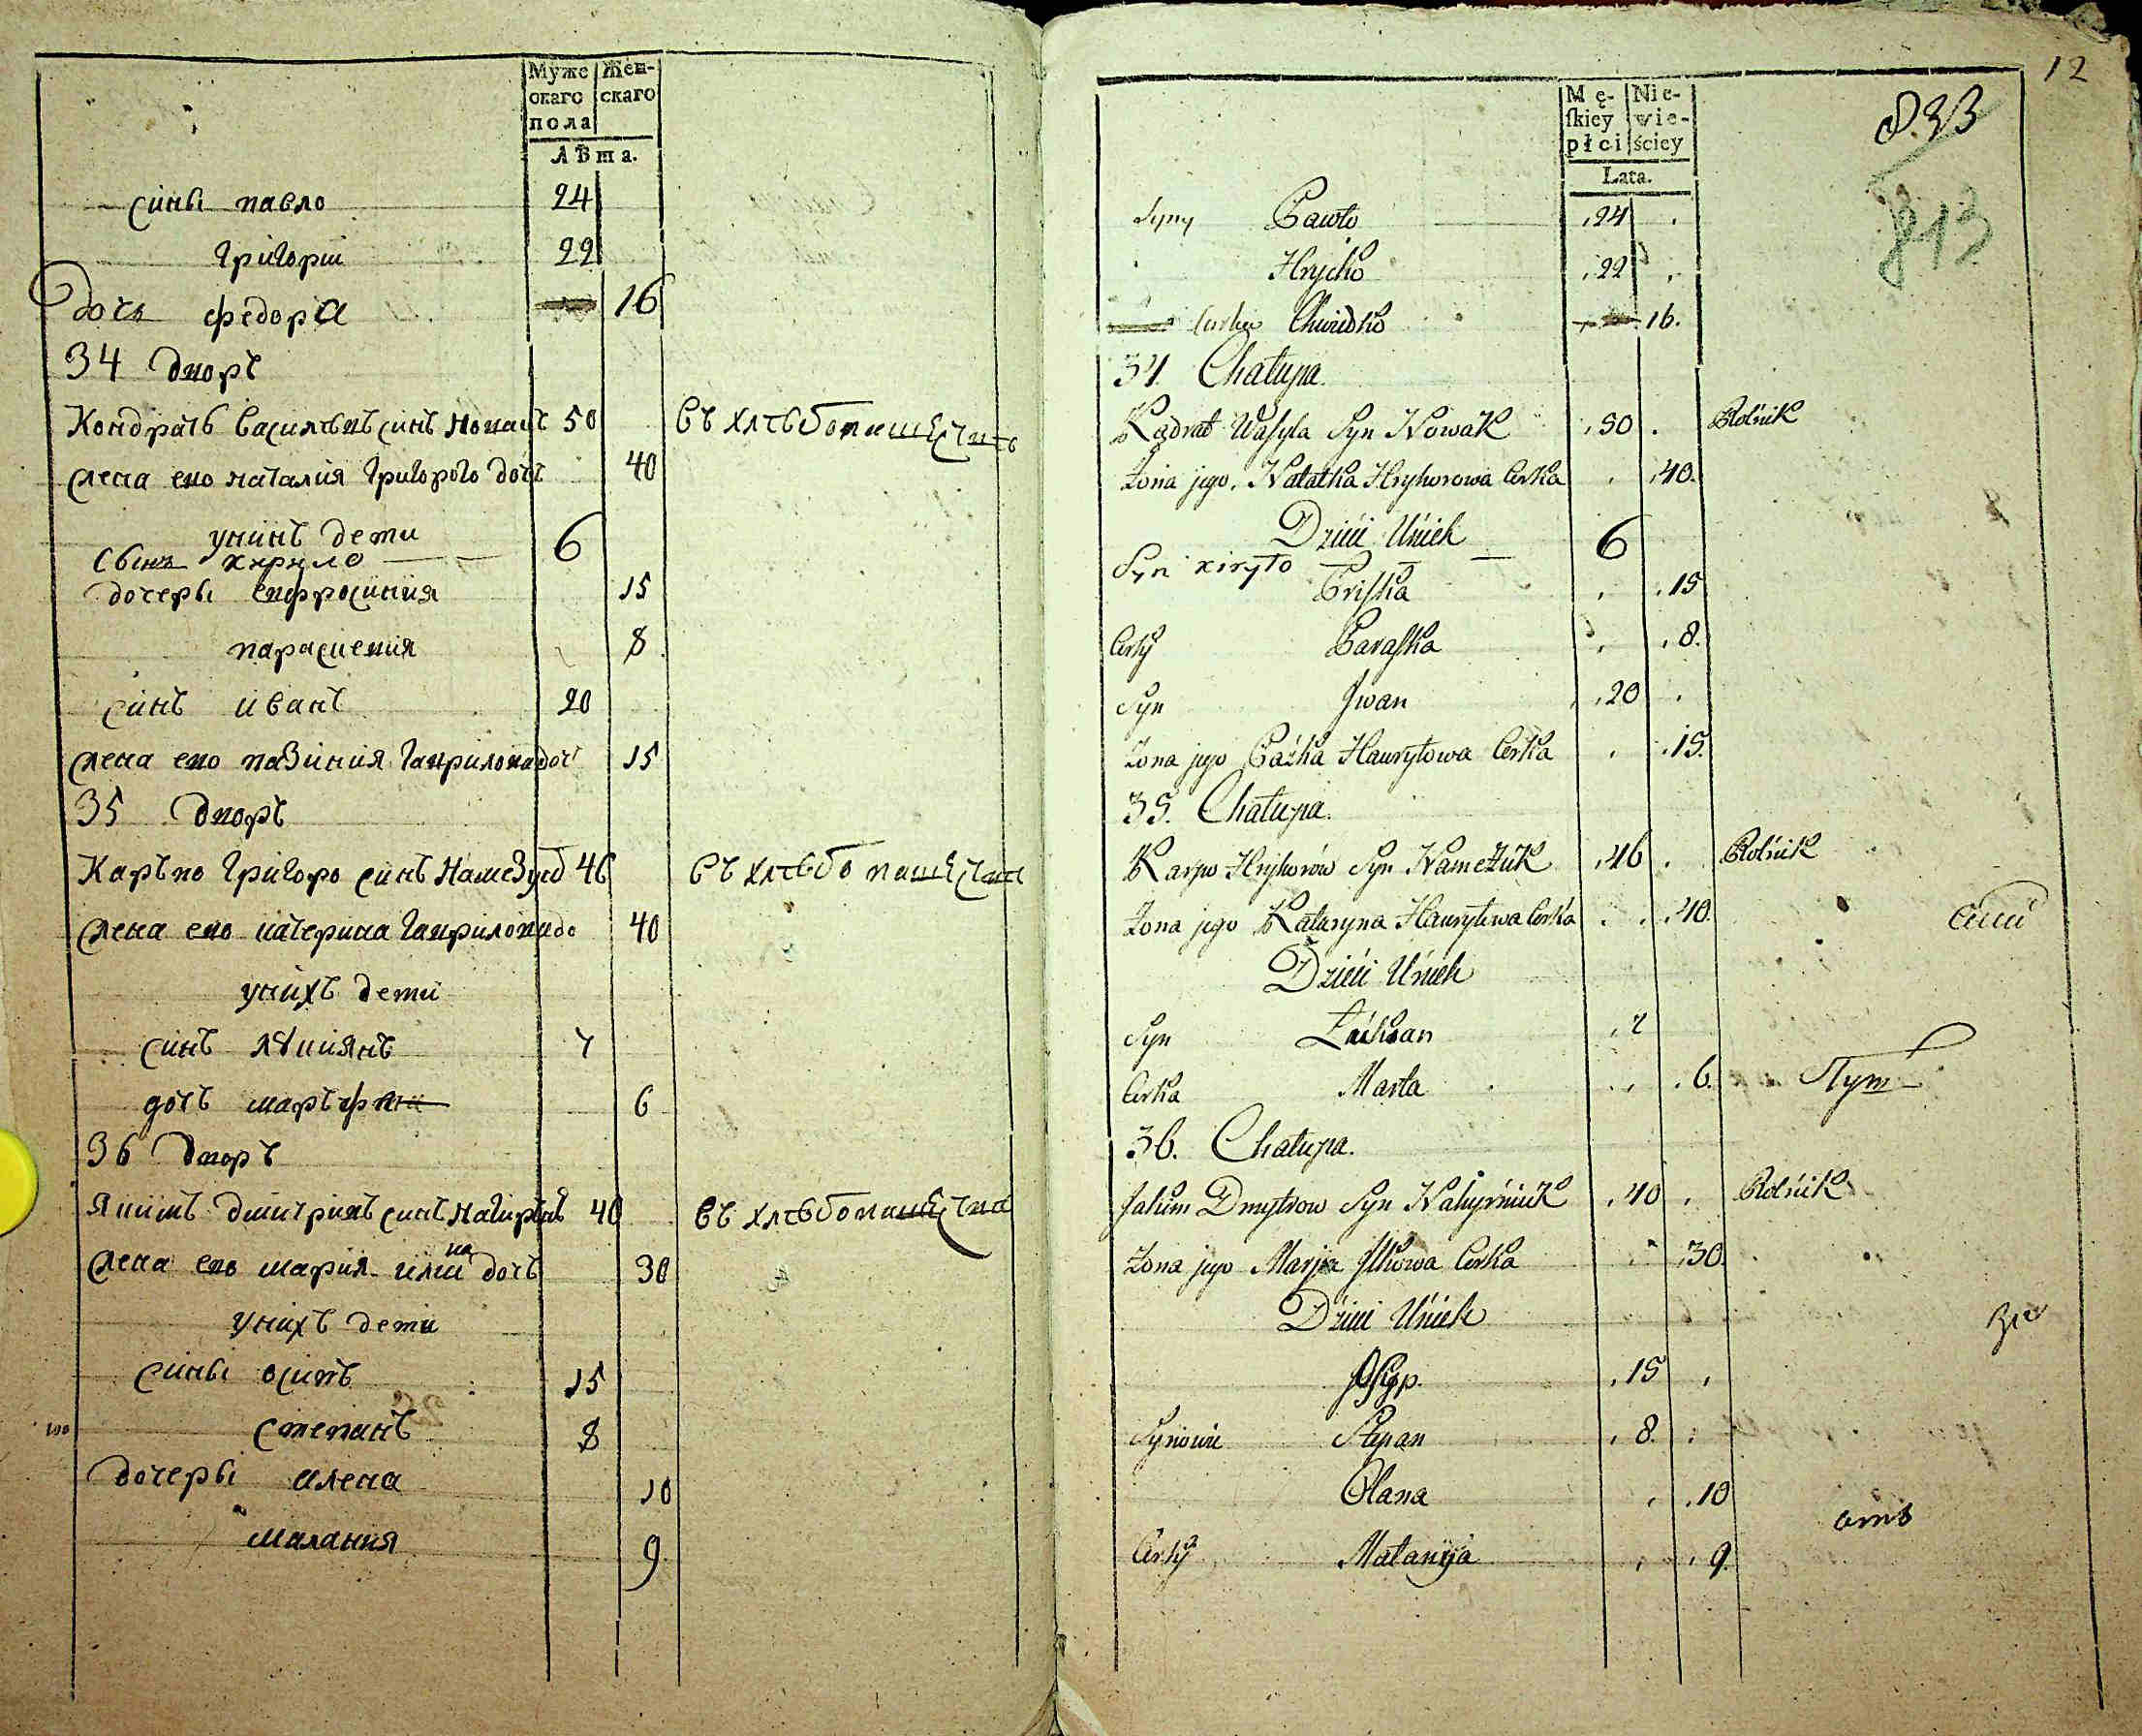 Муже Жен-
скаго скаго
пола
Лѣта.
сины павло 24
григории 22
Дочь федора 16
34 Дворъ
Кондратъ василевъ синъ новакъ 50 въ хлѣбопашестве
жена его наталия григорова дочъ 40
унихъ дети
Сынъ кирило 6
дочеры евфросиния 15
парасцевия 8
синъ иванъ 20
жена его пазиния гаврилова дочъ 15
35 Дворъ
Каръпо григоровъ синъ 46 въ хлѣбопашестве
жена его катерина гаврилова до 40
унихъ дети
синъ лукиянъ 7
дочъ маръфа 6
36 Дворъ
Якимъ дмитриевъ синъ 40 въ хлѣбопашестве
жена его мария дочъ 30
унихъ дети
сины осипъ 15
степанъ 8
дочеры алена 10
малания 9
12
833
813
Mę- Nie-
skiey wie-
płci ściey
Lata.
Syny Pawło 24
Hryćko 22
Corka Chwiedko 16.
34. Chałupa.
Kądrat Wasyla Syn Nowak 50 Rolnik
Żona jego Natałka Hryhorowa Corka 40.
Dzieci U nich
Syn kiryło 6
Priska 15
Corky Paraska 8.
Syn Jwan 20
Żona jego Paźka Hawryłowa Corka 15.
35. Chałupa.
Karpo Hryhorów Syn Namežuk 46 Rolnik
Żona jego Kateryna Hawryłowa Corka 40.
Dzieci U nich
Syn Łukian 7
Corka Marta 6.
36. Chałupa.
Jakim Dmytrow Syn 40 Rolnik
Żona jego Marja Jlkowa Corka 30.
Dzieci U nich
Osyp. 15
Synowie Stepan 8.
Olana 10
Corky Małanija 9.